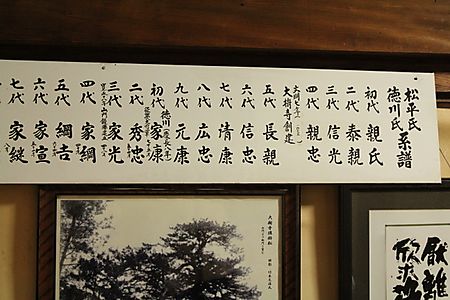 松平氏
徳川氏 系譜
初代 親氏
二代 泰親
三代 信光
四代 親忠
大樹寺創建
五代 長親
六代 信忠
七代 清康
八代 広忠
九代 元康
徳川
初代 家康
二代 秀忠
三代 家光
四代 家綱
五代 綱吉
六代 家宣
七代 家継
厭離
欣求